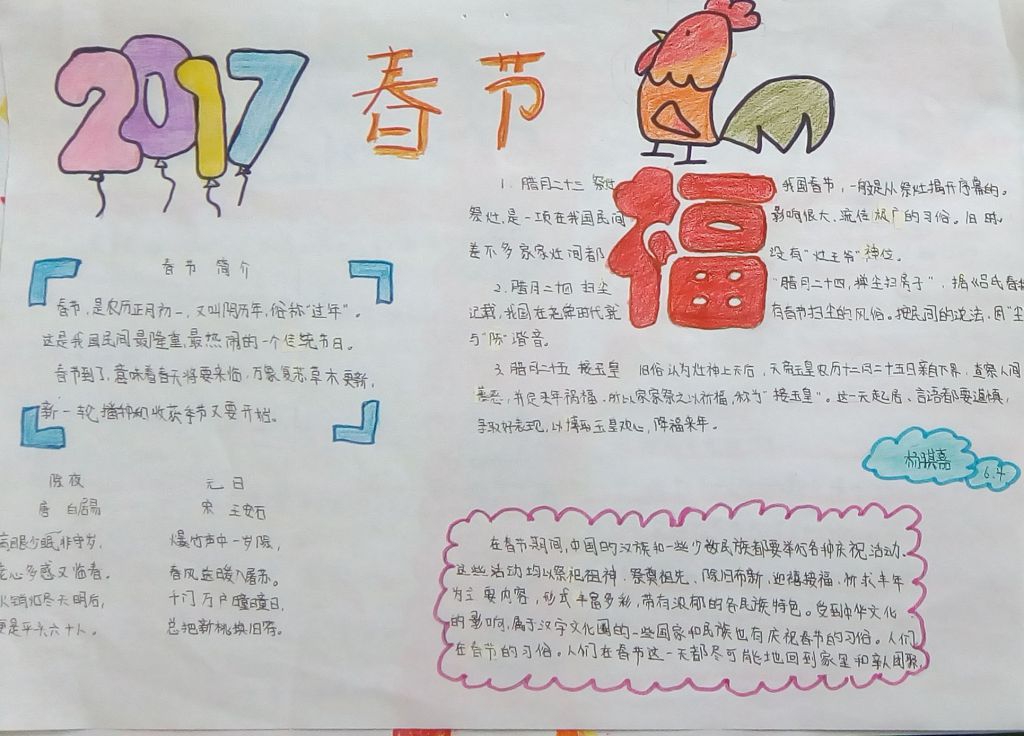 2017
春节
春节 简介
春节,是农历正月初一,又叫阴历年,俗称"过年"。
这是我国民间最隆重,最热闹的一个传统节日。
春节到了,意味着春天将要来临,万象复苏草木更新,
新一轮播种和收获季节又要开始。
除夜
唐 白居易
病眼少眠非守岁,
老心多感又临春。
火销灯尽天明后,
便是平头六十人。
元日
宋 王安石
爆竹声中一岁除,
春风送暖入屠苏。
千门万户曈曈日,
总把新桃换旧符。
福
1. 腊月二十三 祭灶 我国春节,一般是从祭灶揭开序幕的。
祭灶,是一项在我国民间 影响很大、流传极广的习俗。旧时,
差不多家家灶间都 没有"灶王爷"神位。
2. 腊月二四 扫尘 "腊月二十四,掸尘扫房子",据《吕氏春秋
记载,我国在尧舜时代就 有春节扫尘的风俗。按民间的说法:因"尘
与"陈"谐音。
3. 腊月二十五 接玉皇 旧俗认为灶神上天后,天帝玉皇农历十二月二十五日亲自下界,查察人间
善恶,并定来年祸福,所以家家祭之以祈福,称为"接玉皇"。这一天起居、言语都要谨慎,
争取好表现,以博取玉皇欢心,降福来年。
杨琪嘉
6.4
在春节期间,中国的汉族和一些少数民族都要举行各种庆祝活动.
这些活动均以祭祀祖神、祭奠祖先、除旧布新、迎禧接福、祈求丰年
为主要内容,形式丰富多彩,带有浓郁的各民族特色。受到中华文化
的影响,属于汉字文化圈的一些国家和民族也有庆祝春节的习俗。人们
在春节的习俗。人们在春节这一天都尽可能地回到家里和亲人团聚,